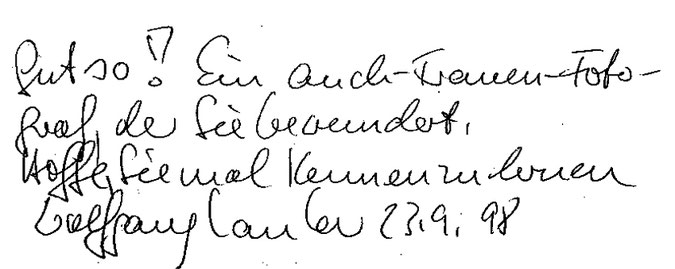 Gut so! Ein auch-Frauen-Foto-
graf, der Sie bewundert.
Hoffe, Sie mal kennenzulernen
Wolfgang 23.9.98